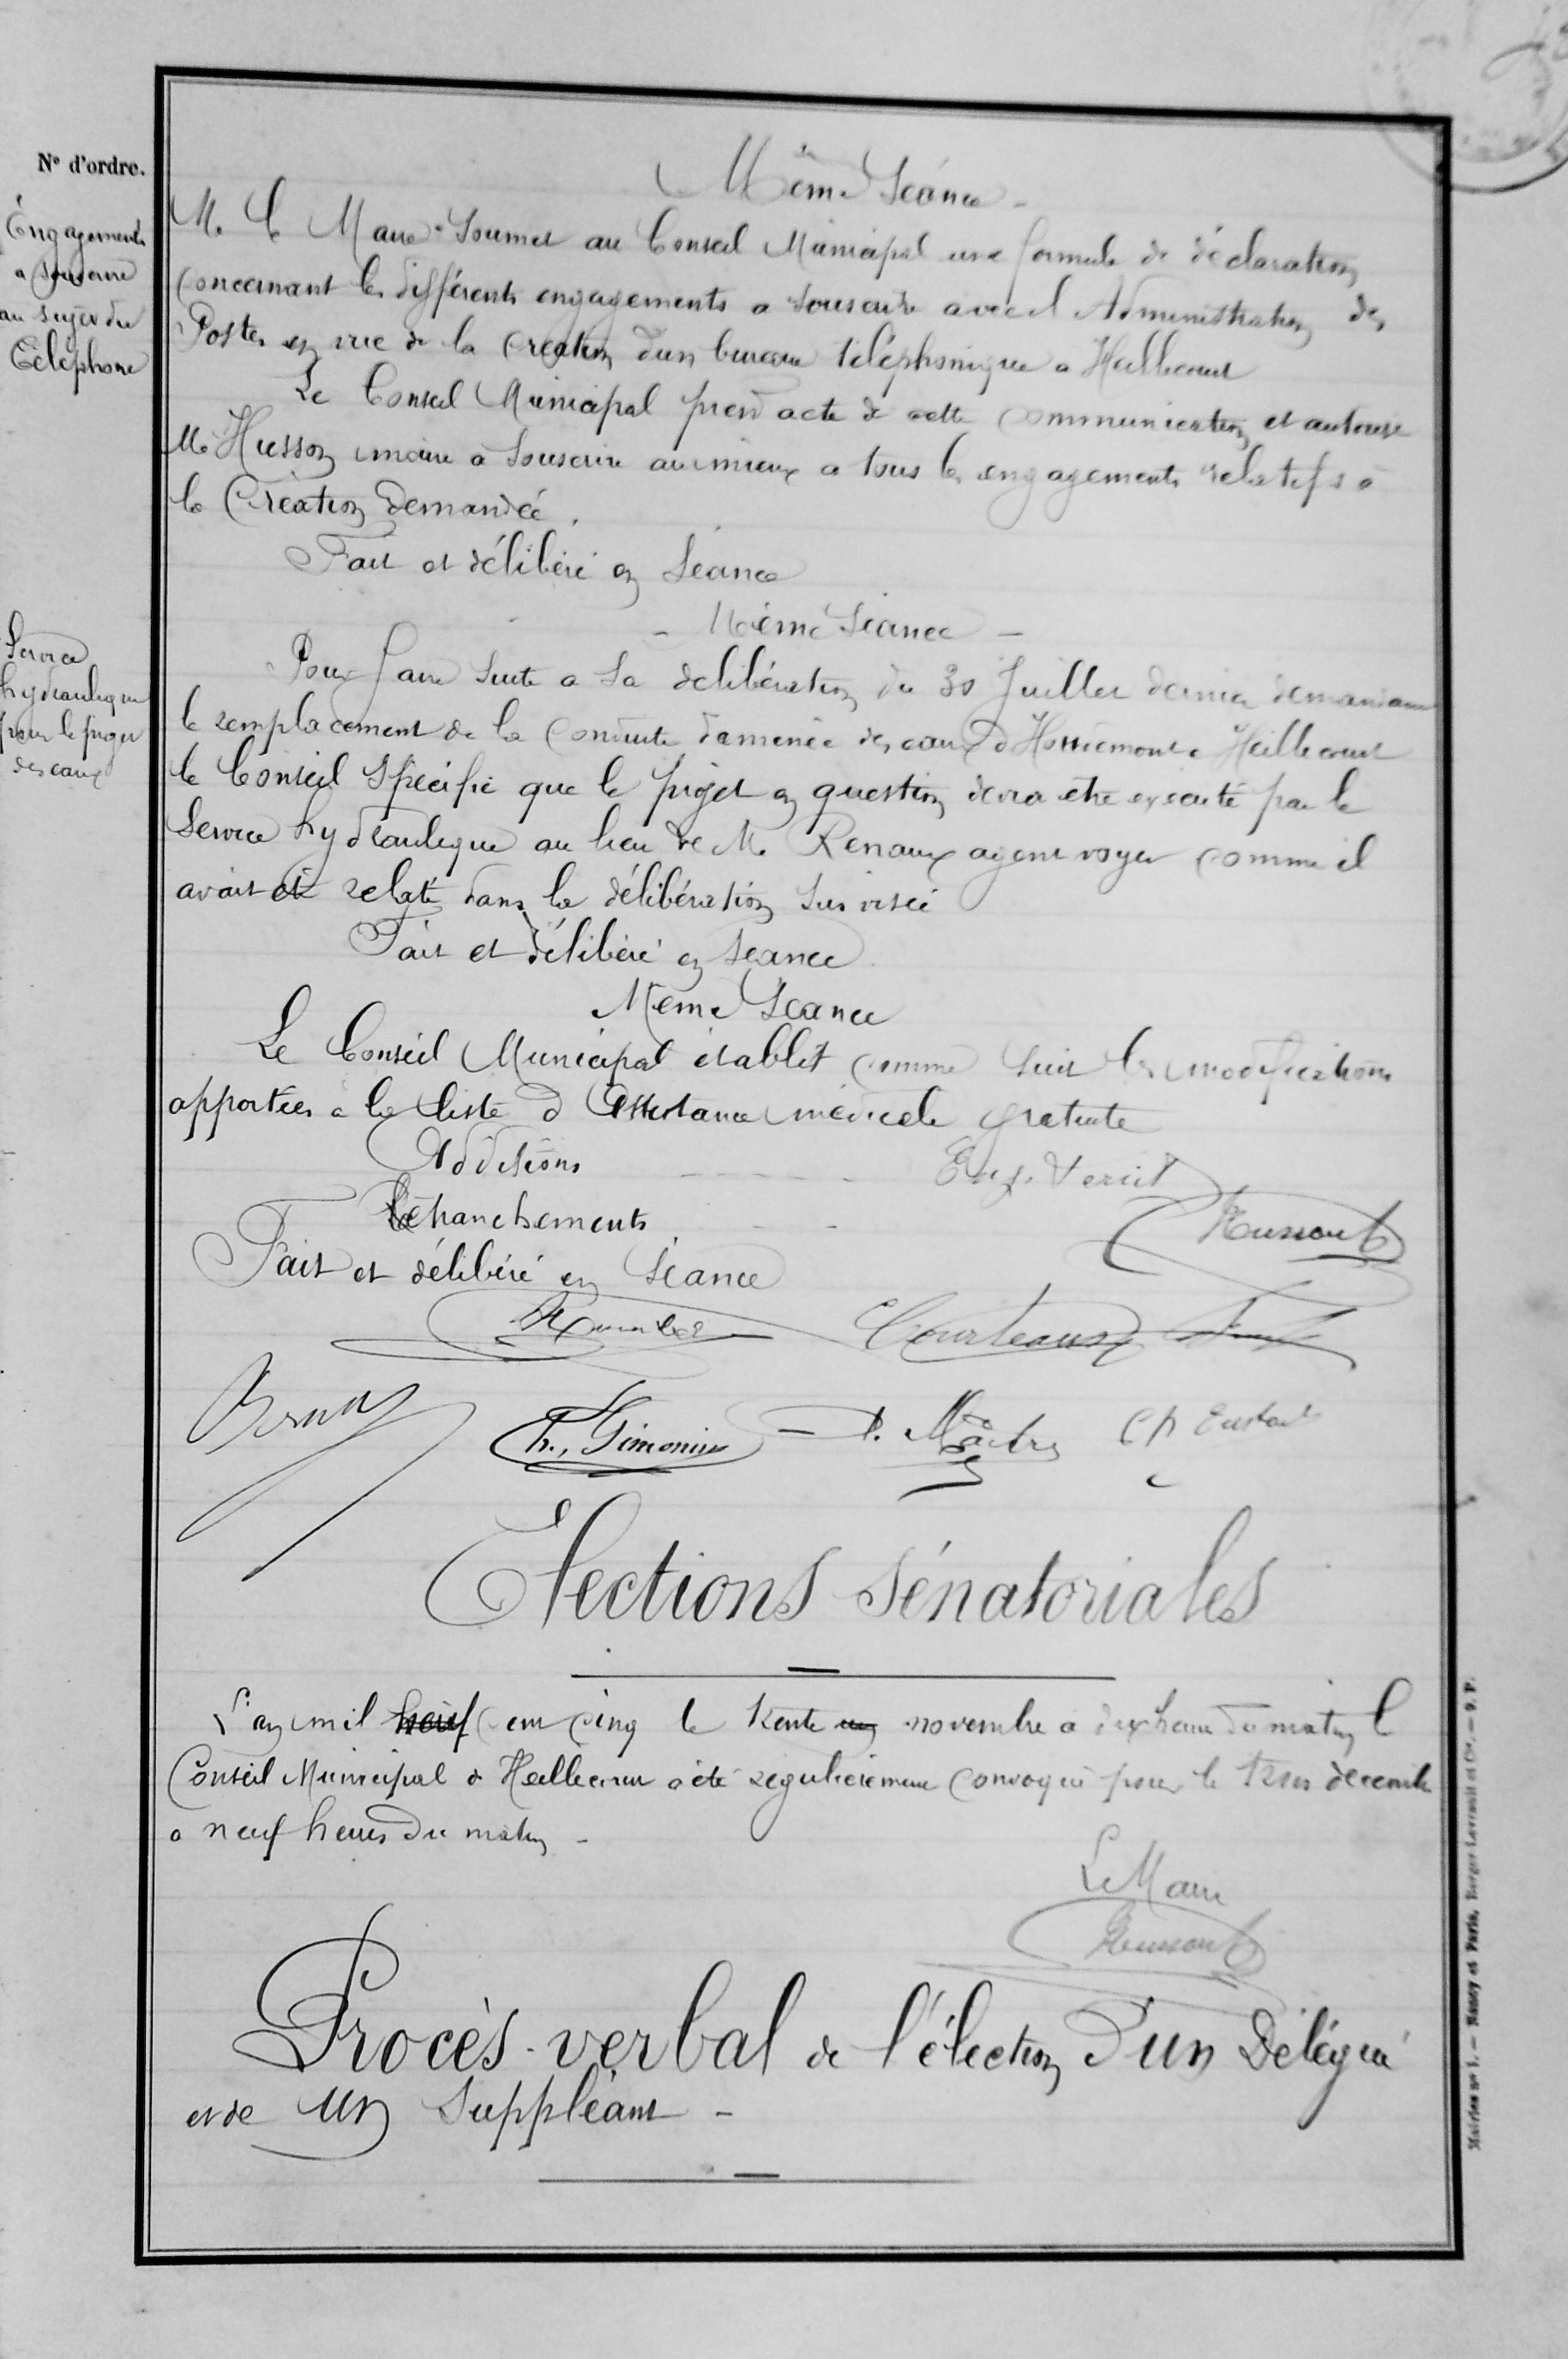 N° d'ordre.
Même Séance -
Engagements
à souscrire
au sujet du
Téléphone
M. le Maire soumet au Conseil Municipal une formule de déclaration
concernant les différents engagements a souscrire avec l Administration des
Postes en vue de la création d'un bureau téléphonique a Heillecourt
Le Conseil Municipal prend acte de cette communication et autorise
M. Husson maire à souscrire au mieux a tous les engagements relatifs à
la Création demandée.
Fait et délibéré en Séance
- Même Séance -
Service
hydraulique
pour le projet
des eaux
Pour faire suite a sa délibération du 30 Juillet dernier demandant
le remplacement de la conduite d'amenée des eaux d a Heillecourt
le Conseil spécifie que le projet en question devra etre executé par le
Service hydraulique au lieu de M. Renaux agent voyer comme il
avait été relaté dans la délibération sus visée
Fait et délibéré en Séance
Même Séance
Le Conseil Municipal établit comme suit les modifications
apportées à la liste d Assistance médicale gratuite
Additions
Retranchements
Husson
Fait et délibéré en Séance
Courteaux
Simonin
Elections Sénatoriales
L'an mil neuf cent cinq le trente novembre a dix heures du matin le
Conseil Municipal de Heillecourt a été régulièrement convoqué pour le trois décembre
a neuf heures du matin -
Le Maire
Husson
Procès-verbal de l'élection d'un Délégué
et de un Suppléant -
Mairies n° 1. — Nancy et Paris, Berger-Levrault et Cie. — 9. P.